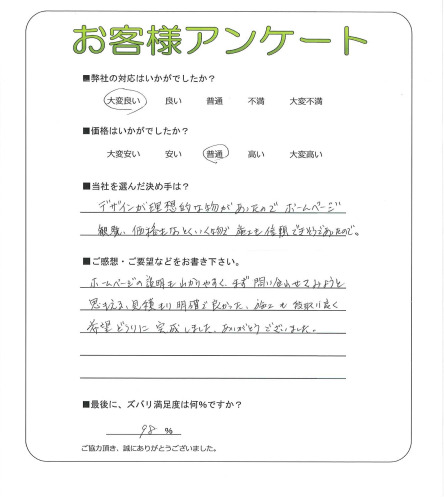 お客様アンケート
■弊社の対応はいかがでしたか?
大変良い 良い 普通 不満 大変不満
■価格はいかがでしたか?
大変安い 安い 普通 高い 大変高い
■当社を選んだ決め手は?
デザインが理想的な物があったので ホームページ
観覧、価格もなっとくいく物で 施工も信頼できそうであったので。
■ご感想・ご要望などをお書き下さい。
ホームページの説明もわかりやすく、まず問い合わせてみようと
思もえる、見積もり明確で良かった、施工も段取り良く
希望どうりに完成しました、ありがとうございました。
■最後に、ズバリ満足度は何%ですか?
98 %
ご協力頂き、誠にありがとうございました。